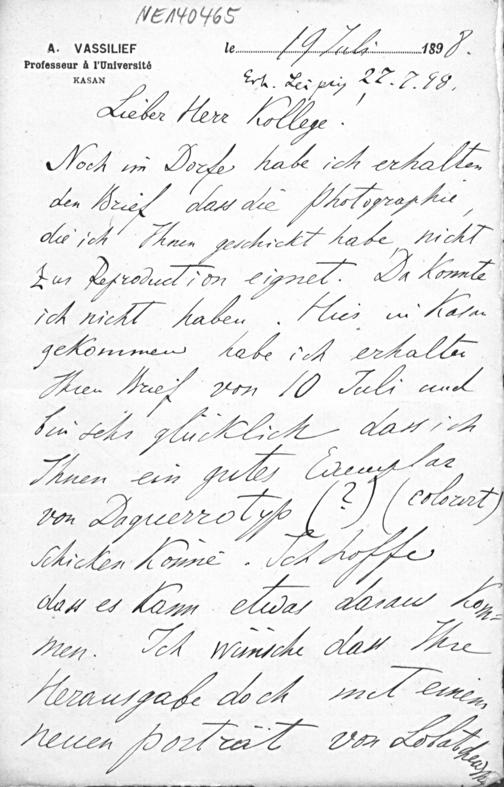 NEA40465
A. VASSILIEF
Professeur à l'Université
KASAN
le 19 Juli 1898.
Erh. Leipzig 27.7.98.
Lieber Herr Kollege.
Noch im Dorfe habe ich erhalten
den Brief, dass die Photographie,
die ich Ihnen geschickt habe, nicht
zur Reproduction eignet. Da konnte
ich nicht haben. Hier in Kasan
gekommen habe ich erhalten
Ihren Brief von 10 Juli und
bin sehr glücklich dass ich
Ihnen ein gutes Exemplar
von Daguerrotyp (?) (colorirt)
schicken könne. Ich hoffe
dass es kann etwas daraus kom=
men. Ich wünsche dass Ihre
Herausgabe doch mit einem
neuen porträt von Lobatchewsky